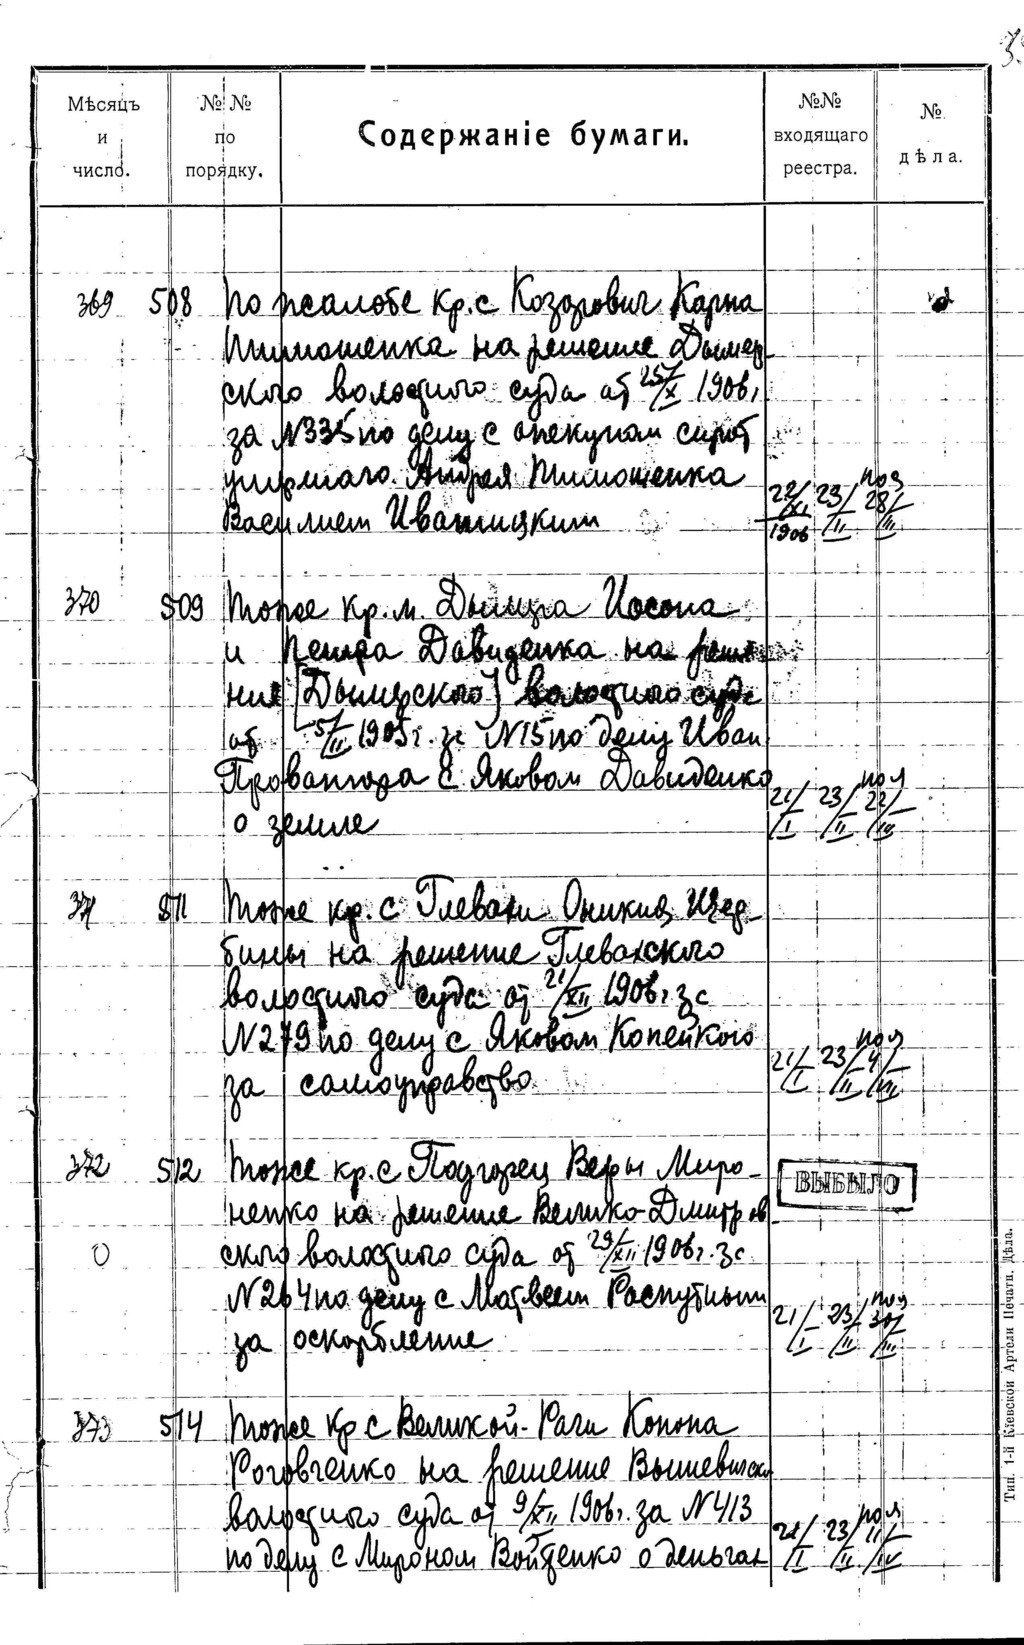 Мѣсяцъ и число.
№ № по порядку.
Содержаніе бумаги.
№№ входящаго реестра.
№ дѣла.
369 508 По жалобе кр. с Козарович Карпа
Тимошенка на решение Дымер-
ского волостного суда от 25/X 1906 г.
за N 335 по делу с опекуном сирот
умершаго Андрея Тимошенка
Василием Иваницким 22/XI 1906 23/II 28/III
370 509 Тоже кр. м. Дымера Иосипа
и Петра Давиденка на реше-
ние [Дымерского] волостного суда
от 5/II 1905 г. за N 15 по делу Иван
с Яковом Давиденко
о земле 21/I 23/II 22/III
371 511 Тоже кр. с Глевахи Оникия Щер-
бины на решение Глевахского
волостного суда от 21/XII 1906 г за
N 279 по делу с Яковом Копейкого
за самоуправство 21/I 23/II 4/III
372 512 Тоже кр. с Подгорец Веры Миро-
ненко на решение Велико-Дмитров
ского волостного суда от 29/XII 1906 г. за
N 264 по делу с Матвеем Распутным
за оскорбление 21/I 23/II 30/III
ВЫБЫЛО
373 514 Тоже кр с Великой-Раги Конона
Роговченко на решение
волостного суда от 9/XII 1906 г. за N 413
по делу с Мироном Войтенко о деньгах 21/I 23/II 11/IV
Тип. 1-й Кіевской Артели Печатн. Дѣла.